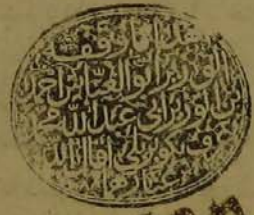 هذا ما وقف
الوزير أبو العباس احمد
بن الوزير أبي عبد الله محمد
عرف بكوپريلي أقال الله
عثارهما